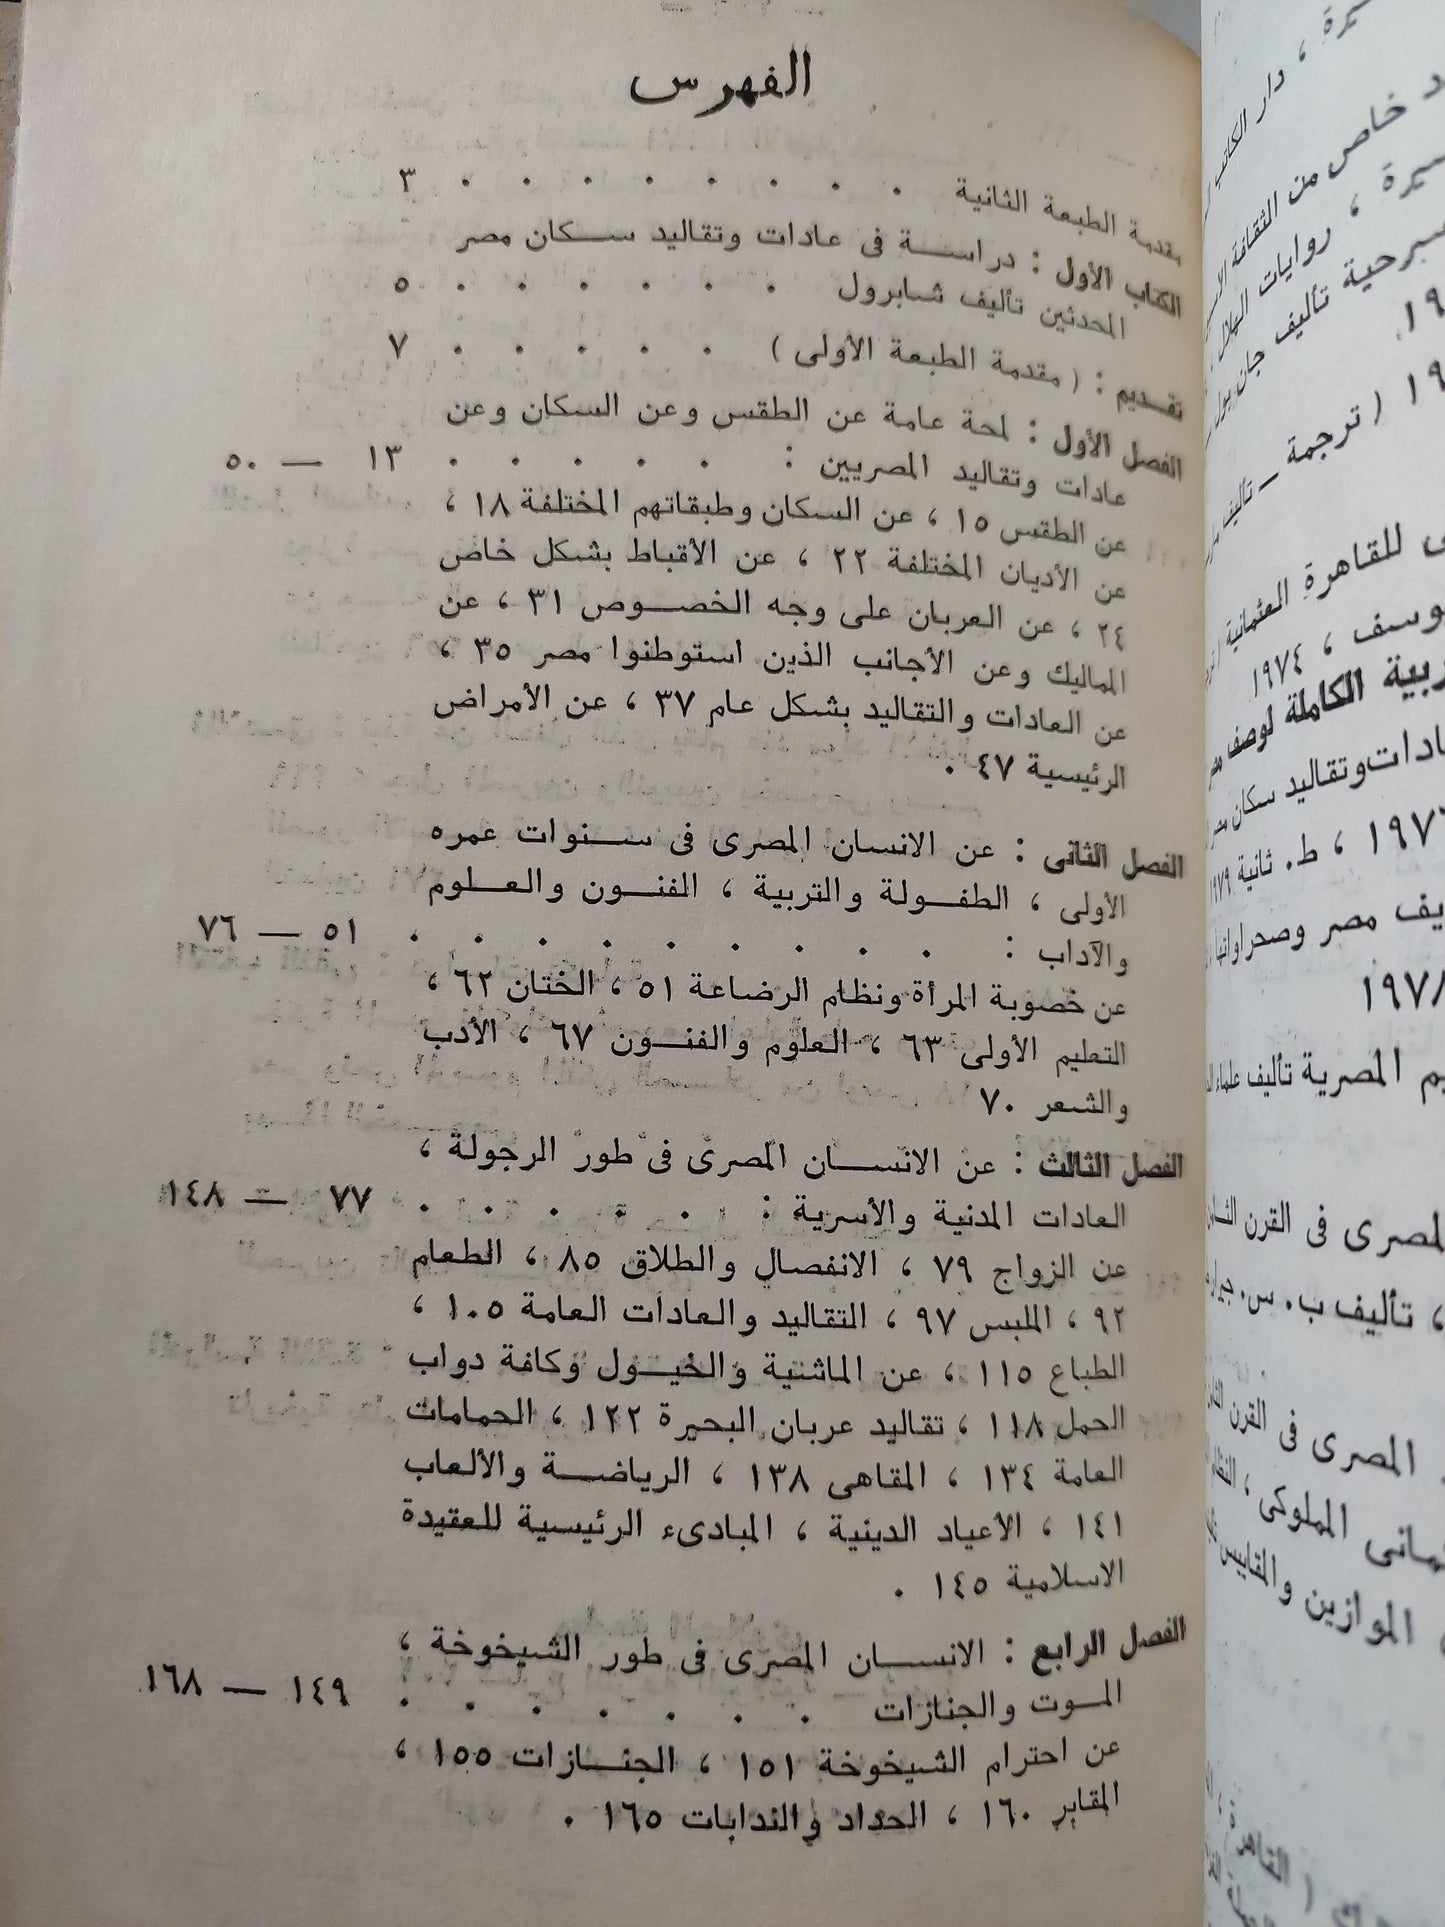 الفهرس
مقدمة الطبعة الثانية . . . . . . . . ٣
الكتاب الأول : دراسة فى عادات وتقاليد سكان مصر
المحدثين تأليف شابرول . . . . . . ٥
تقديم : ( مقدمة الطبعة الأولى ) . . . . . ٧
الفصل الأول : لمحة عامة عن الطقس وعن السكان وعن
عادات وتقاليد المصريين : . . . . . ١٣ — ٥٠
عن الطقس ١٥ ، عن السكان وطبقاتهم المختلفة ١٨ ،
عن الأديان المختلفة ٢٢ ، عن الأقباط بشكل خاص
٢٤ ، عن العربان على وجه الخصوص ٣١ ، عن
المماليك وعن الأجانب الذين استوطنوا مصر ٣٥ ،
عن العادات والتقاليد بشكل عام ٣٧ ، عن الأمراض
الرئيسية ٤٧ .
الفصل الثانى : عن الانسان المصرى فى سنوات عمره
الأولى ، الطفولة والتربية ، الفنون والعلوم
والآداب : . . . . . . . . . ٥١ — ٧٦
عن خصوبة المرأة ونظام الرضاعة ٥١ ، الختان ٦٢ ،
التعليم الأولى ٦٣ ، العلوم والفنون ٦٧ ، الأدب
والشعر ٧٠
الفصل الثالث : عن الانسان المصرى فى طور الرجولة ،
العادات المدنية والأسرية : . . . . . ٧٧ — ١٤٨
عن الزواج ٧٩ ، الانفصال والطلاق ٨٥ ، الطعام
٩٢ ، الملبس ٩٧ ، التقاليد والعادات العامة ١٠٥ ،
الطباع ١١٥ ، عن الماشية والخيول وكافة دواب
الحمل ١١٨ ، تقاليد عربان البحيرة ١٢٢ ، الحمامات
العامة ١٣٤ ، المقاهى ١٣٨ ، الرياضة والألعاب
١٤١ ، الأعياد الدينية ، المبادىء الرئيسية للعقيدة
الاسلامية ١٤٥ .
الفصل الرابع : الانسان المصرى فى طور الشيخوخة ،
الموت والجنازات . . . . . . . ١٤٩ — ١٦٨
عن احترام الشيخوخة ١٥١ ، الجنازات ١٥٥ ،
المقابر ١٦٠ ، الحداد والندابات ١٦٥ .
، دار الكاتب
خاص من الثقافة
، روايات الهلال
تأليف جان بول
( ترجمة — تأليف
للقاهرة العثمانية
، ١٩٧٤
الكاملة لوصف
وتقاليد سكان
، ط. ثانية ١٩٧٩
مصر وصحراواتها
١٩٧٨
المصرية تأليف علماء
المصرى فى القرن
، تأليف ب. س. جيرار
المصرى فى القرن
المملوكى ، النظام
الموازين والمقاييس
( القاهرة